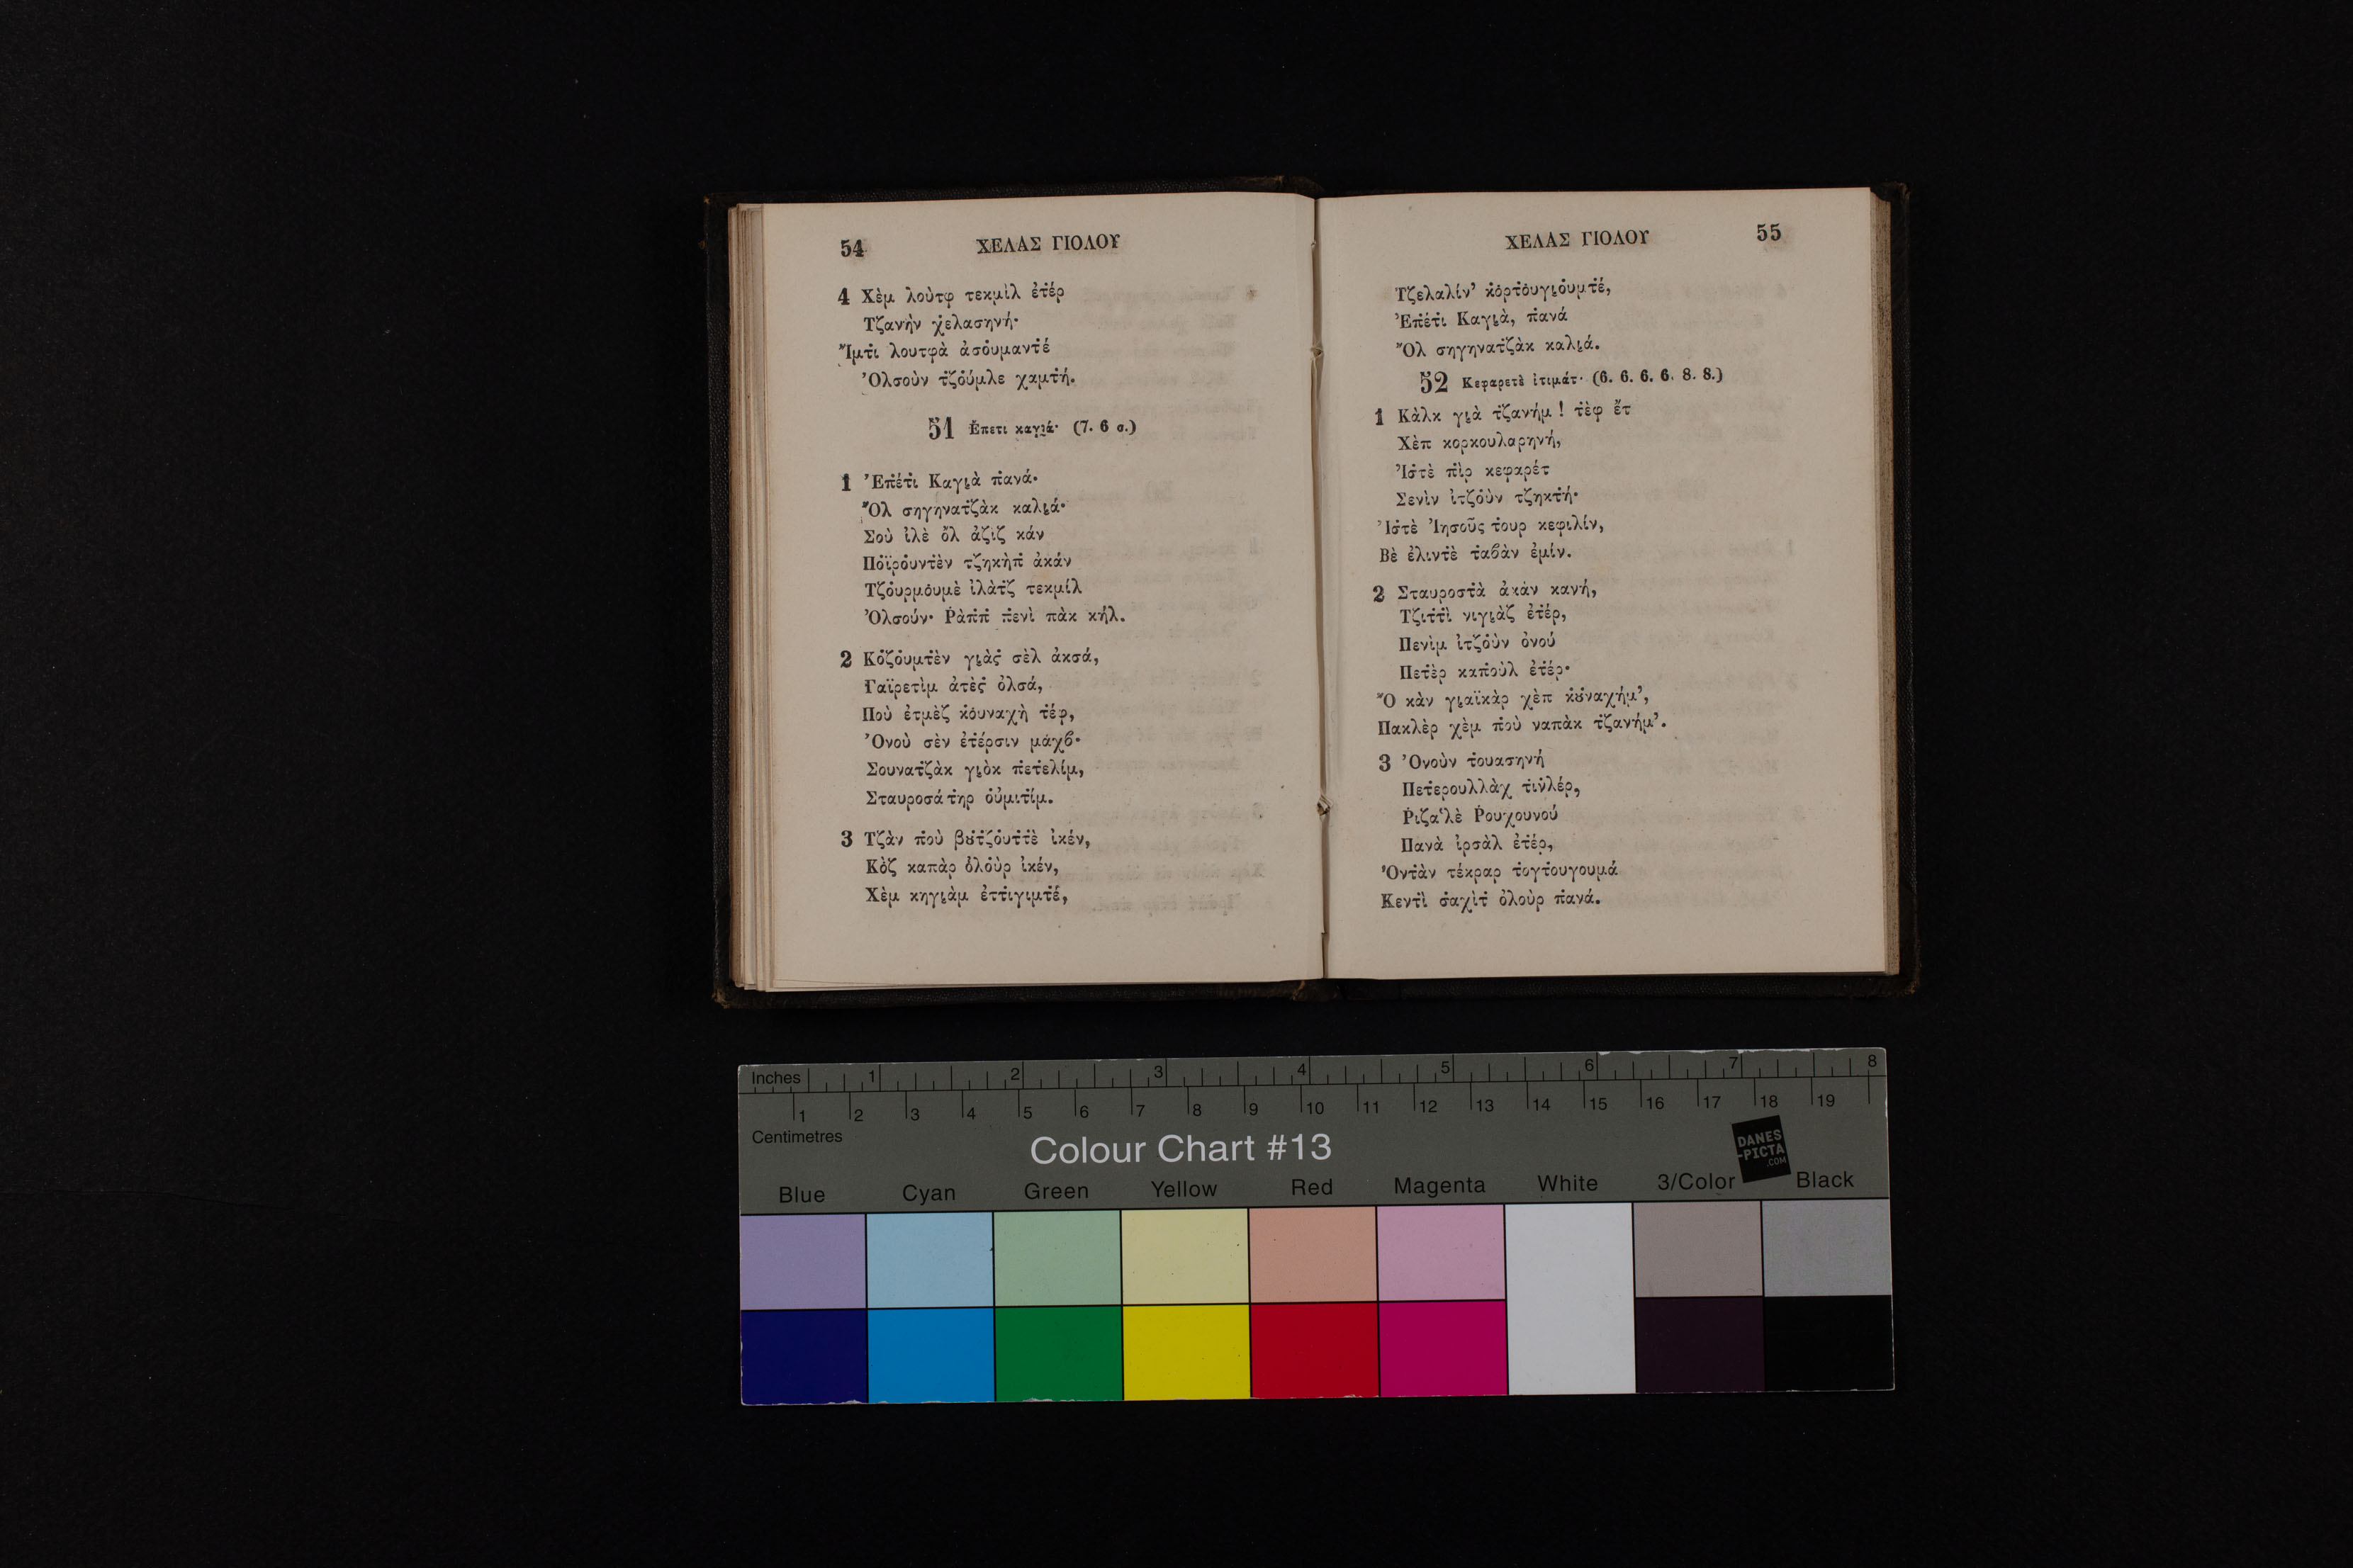 54 ΧΕΛΑΣ ΓΙΟΛΟΥ
4 Χὲμ λοὺτφ τεκμὶλ ἐτ̇έρ
Τζανὴν χ̇ελασηνή·
Ἴμτ̇ι λουτφὰ ἀσο̇υμαντ̇έ
Ὀλσοὺν τ̇ζο̇ύμλε χαμτ̇ή.
51 Ἔπετι καγι̯ά· (7. 6 σ.)
1 Ἐπ̇έτ̇ι Καγι̯ὰ π̇ανά·
Ὂλ σηγηνατ̇ζὰκ καλι̯ά·
Σοὺ ἰλὲ ὂλ ἀζὶζ κάν
Πο̇ϊρο̇υντ̇ὲν τζηκὴπ̇ ἀκάν
Τζο̇υρμο̇υμὲ ἰλὰτ̇ζ τεκμίλ
Ὀλσούν· Ῥὰπ̇π̇ π̇ενὶ πὰκ κήλ.
2 Κο̇ζο̇υμτ̇ὲν γι̯ὰς̇ σὲλ ἀκσά,
Γαϊρετὶμ ἀτὲς̇ ὀλσά,
Ποὺ ἐτμὲζ κ̇ο̇υναχὴ τ̇έφ,
Ὀνοὺ σὲν ἐτ̇έρσιν μάχϐ·
Σουνατ̇ζὰκ γι̯ὸκ π̇ετ̇ελίμ,
Σταυροσάτ̇ηρ ο̇ὐμιτ̇ίμ.
3 Τζὰν π̇οὺ βȣτ̇ζο̇υττ̇ὲ ἰκέν,
Κὸ̇ζ καπὰρ ὀ̇λο̇ὺρ ἰκέν,
Χὲμ κηγι̯ὰμ ἐττ̇ιγιμτ̇έ,
ΧΕΛΑΣ ΓΙΟΛΟΥ 55
Τζελαλίν’ κ̇ο̇ρτο̇υγι̯ο̇υμτ̇έ,
Ἐπ̇έτ̇ι Καγι̯ὰ, π̇ανά
Ὂλ σηγηνατ̇ζὰκ καλι̯ά.
52 Κεφαρετὲ ἰτιμάτ· (6. 6. 6. 6. 8. 8.)
1 Κὰλκ γι̯ὰ τ̇ζανήμ! τ̇ὲφ ἔτ
Χὲπ κορκουλαρηνή,
Ἰς̇τὲ π̇ὶρ κεφαρέτ
Σενὶν ἰτζο̇ὺν τζηκτ̇ή·
Ἰς̇τὲ Ἰησοῦς τ̇ουρ κεφιλίν,
Βὲ ἐλιντ̇ὲ τ̇αϐὰν ἐμίν.
2 Σταυροστ̇ὰ ἀκὰν κανή,
Τζιττ̇ὶ νιγι̯ὰζ ἐτ̇έρ,
Πενὶμ ἰτζο̇ὺν ὀνού
Πετ̇ὲρ καπ̇οὺλ ἐτ̇έρ·
Ὂ κὰν γι̯αϊκὰρ χὲπ κ̇ȣ̇ναχήμ’,
Πακλὲρ χὲμ π̇οὺ ναπὰκ τ̇ζανήμ’.
3 Ὀνοὺν τ̇ουασηνή
Πετ̇ερουλλὰχ τ̇ινλέρ,
Ῥιζα‘λὲ Ῥουχουνού
Πανὰ ἰρσὰλ ἐτ̇έρ,
Ὀντ̇ὰν τέκραρ τ̇ογτ̇ουγουμά
Κεντ̇ὶ σ̇αχὶτ̇ ὀλοὺρ π̇ανά.
Inches 1 2 3 4 5 6 7 8
1 2 3 4 5 6 7 8 9 10 11 12 13 14 15 16 17 18 19
Centimetres
Colour Chart #13
DANES
-PICTA
.COM
Blue Cyan Green Yellow Red Magenta White 3/Color Black